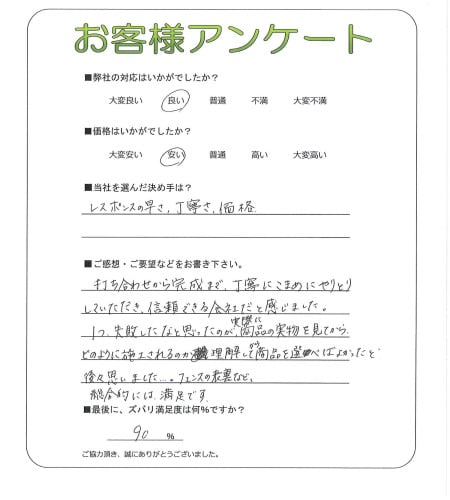 お客様アンケート
■弊社の対応はいかがでしたか?
大変良い 良い 普通 不満 大変不満
■価格はいかがでしたか?
大変安い 安い 普通 高い 大変高い
■当社を選んだ決め手は?
レスポンスの早さ,丁寧さ,価格
■ご感想・ご要望などをお書き下さい。
打ち合わせから完成まで,丁寧にこまめにやりとり
していただき,信頼できる会社だと感じました。
1つ,失敗したなと思ったのが,実際に商品の実物を見てから,
どのように施工されるのか理解してから商品を選べばよかったと
後々思いました…。フェンスの表裏など。
総合的には,満足です.
■最後に、ズバリ満足度は何%ですか?
90 %
ご協力頂き、誠にありがとうございました。